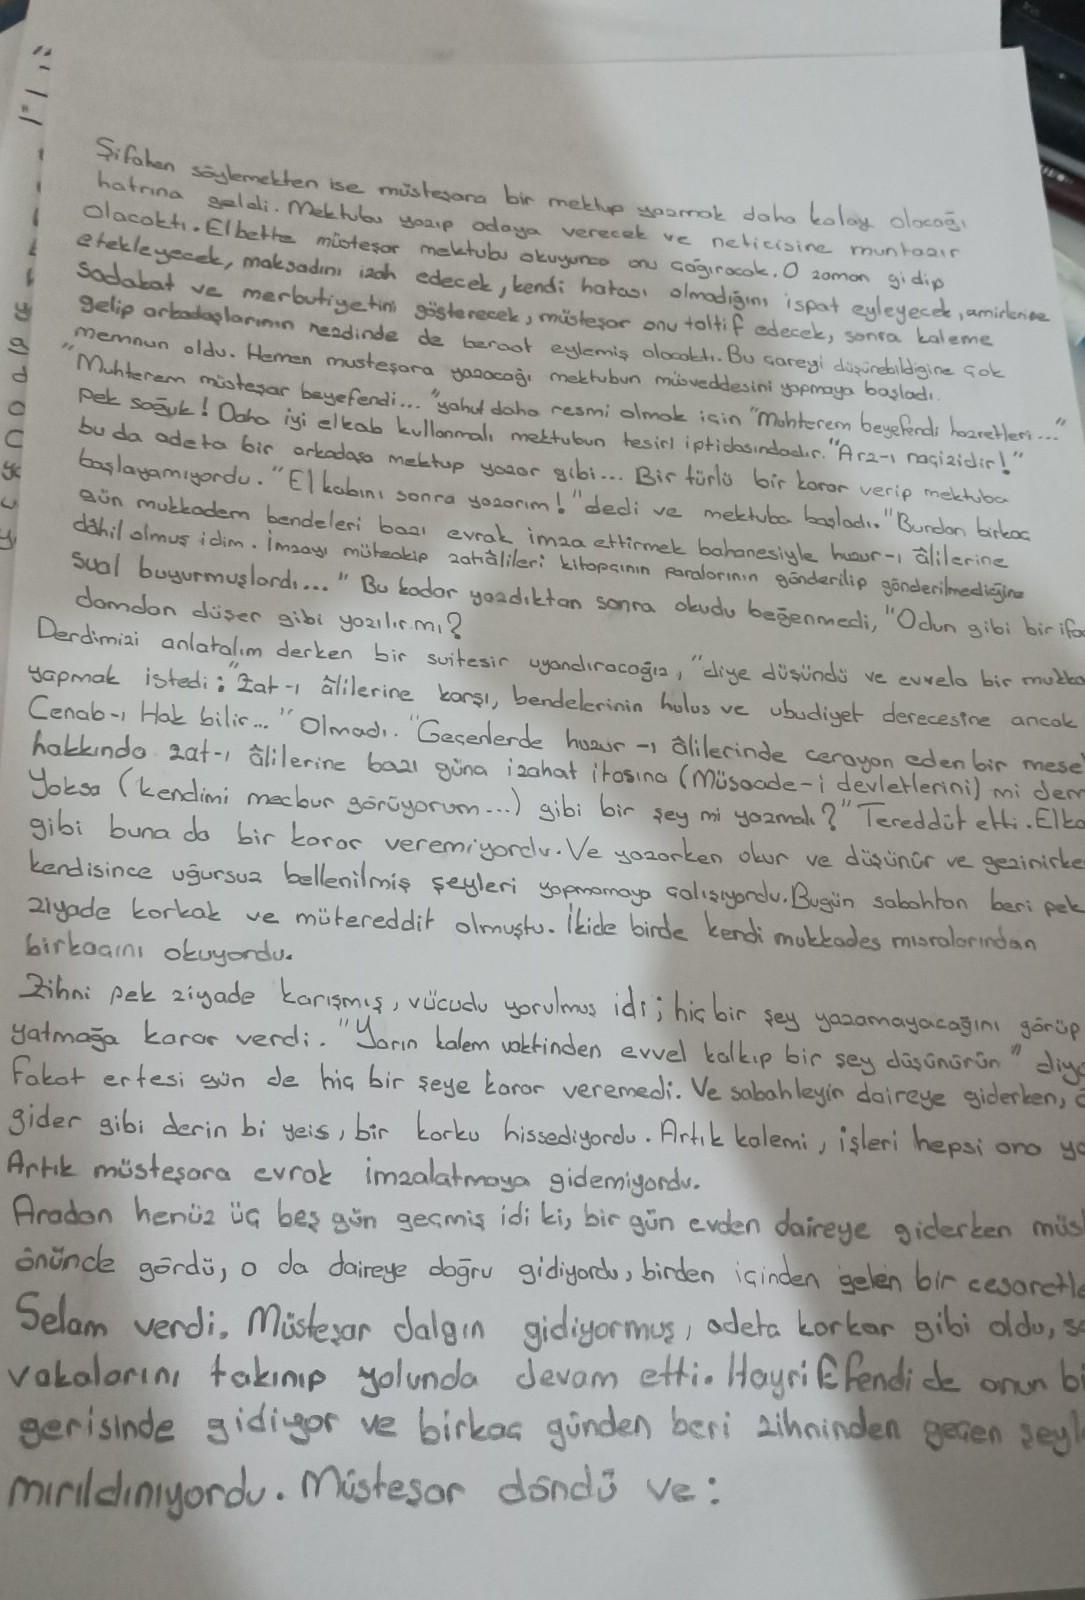 Şifahen söylemekten ise müsteşara bir mektup yazmak daha kolay olacağı
hatrına geldi. Mektubu yazıp odaya verecek ve neticisine muntazır
olacaktı. Elbette müsteşar mektubu okuyunca onu çağıracak. O zaman gidip
etekleyecek, maksadını izah edecek, kendi hatası olmadığını ispat eyleyecek, amirlerine
sadakat ve merbutiyetini gösterecek, müsteşar onu taltif edecek, sonra kaleme
gelip arkadaşlarının nezdinde de beraat eylemiş olacaktı. Bu çareyi düşünebildiğine çok
memnun oldu. Hemen musteşara yazacağı mektubun müsveddesini yapmaya başladı.
"Muhterem müsteşar beyefendi... "yahut daha resmi olmak için "Muhterem beyefendi hazretleri..."
Pek soğuk! Daha iyi elkab kullanmalı mektubun tesiri iptidasındadır. "Arz-ı naçizidir!"
bu da adeta bir arkadaşa mektup yazar gibi... Bir türlü bir karar verip mektuba
başlayamıyordu. "Elkabını sonra yazarım!" dedi ve mektuba başladı. "Bundan birkaç
gün mukkadem bendeleri bazı evrak imza ettirmek bahanesiyle huzur-ı âlilerine
dâhil olmuş idim. İmzayı müteakip zatıâlileri kitapçının paralarının gönderilip gönderilmediğine
sual buyurmuşlardı..." Bu kadar yazdıktan sonra okudu beğenmedi, "Odun gibi bir
damdan düşer gibi yazılır mı?
Derdimizi anlatalım derken bir suitesir uyandıracağız, "diye düşündü ve evvela bir
yapmak istedi: "Zat-ı âlilerine karşı, bendelerinin hulus ve ubudiyet derecesine ancak
Cenab-ı Hak bilir..." Olmadı. "Geçenlerde huzur-ı âlilerinde cerayan eden bir mese
hakkında zat-ı âlilerine bazı güna izahat itasına (Müsaade-i devletlerini) mi dem
Yoksa (kendimi mecbur görüyorum...) gibi bir şey mi yazmalı?" Tereddüt etti. Elka
gibi buna da bir karar veremiyordu. Ve yazarken okur ve düşünür ve gezinirke
kendisince uğursuz bellenilmiş şeyleri yapmamaya çalışıyordu. Bugün sabahtan beri pek
ziyade korkak ve mütereddit olmuştu. İkide birde kendi mukkades mısralarından
birkaçını okuyordu.
Zihni pek ziyade karışmış, vücudu yorulmuş idi; hiç bir şey yazamayacağını görüp
yatmağa karar verdi. "Yarın kalem vaktinden evvel kalkıp bir şey düşünürün" diye
Fakat ertesi gün de hiç bir şeye karar veremedi. Ve sabahleyin daireye giderken,
gider gibi derin bi yeis, bir korku hissediyordu. Artık kalemi, işleri hepsi ona ya
Artık müsteşara evrak imzalatmaya gidemiyordu.
Aradan henüz üç beş gün geçmiş idi ki, bir gün evden daireye giderken müs
önünde gördü, o da daireye doğru gidiyordu, birden içinden gelen bir cesaretle
Selam verdi. Müsteşar dalgın gidiyormuş, adeta korkar gibi oldu, s
vakalarını takınıp yolunda devam etti. Hayri Efendi de onun bi
gerisinde gidiyor ve birkaç günden beri zihninden geçen şeyl
mırıldınıyordu. Müsteşar döndü ve: